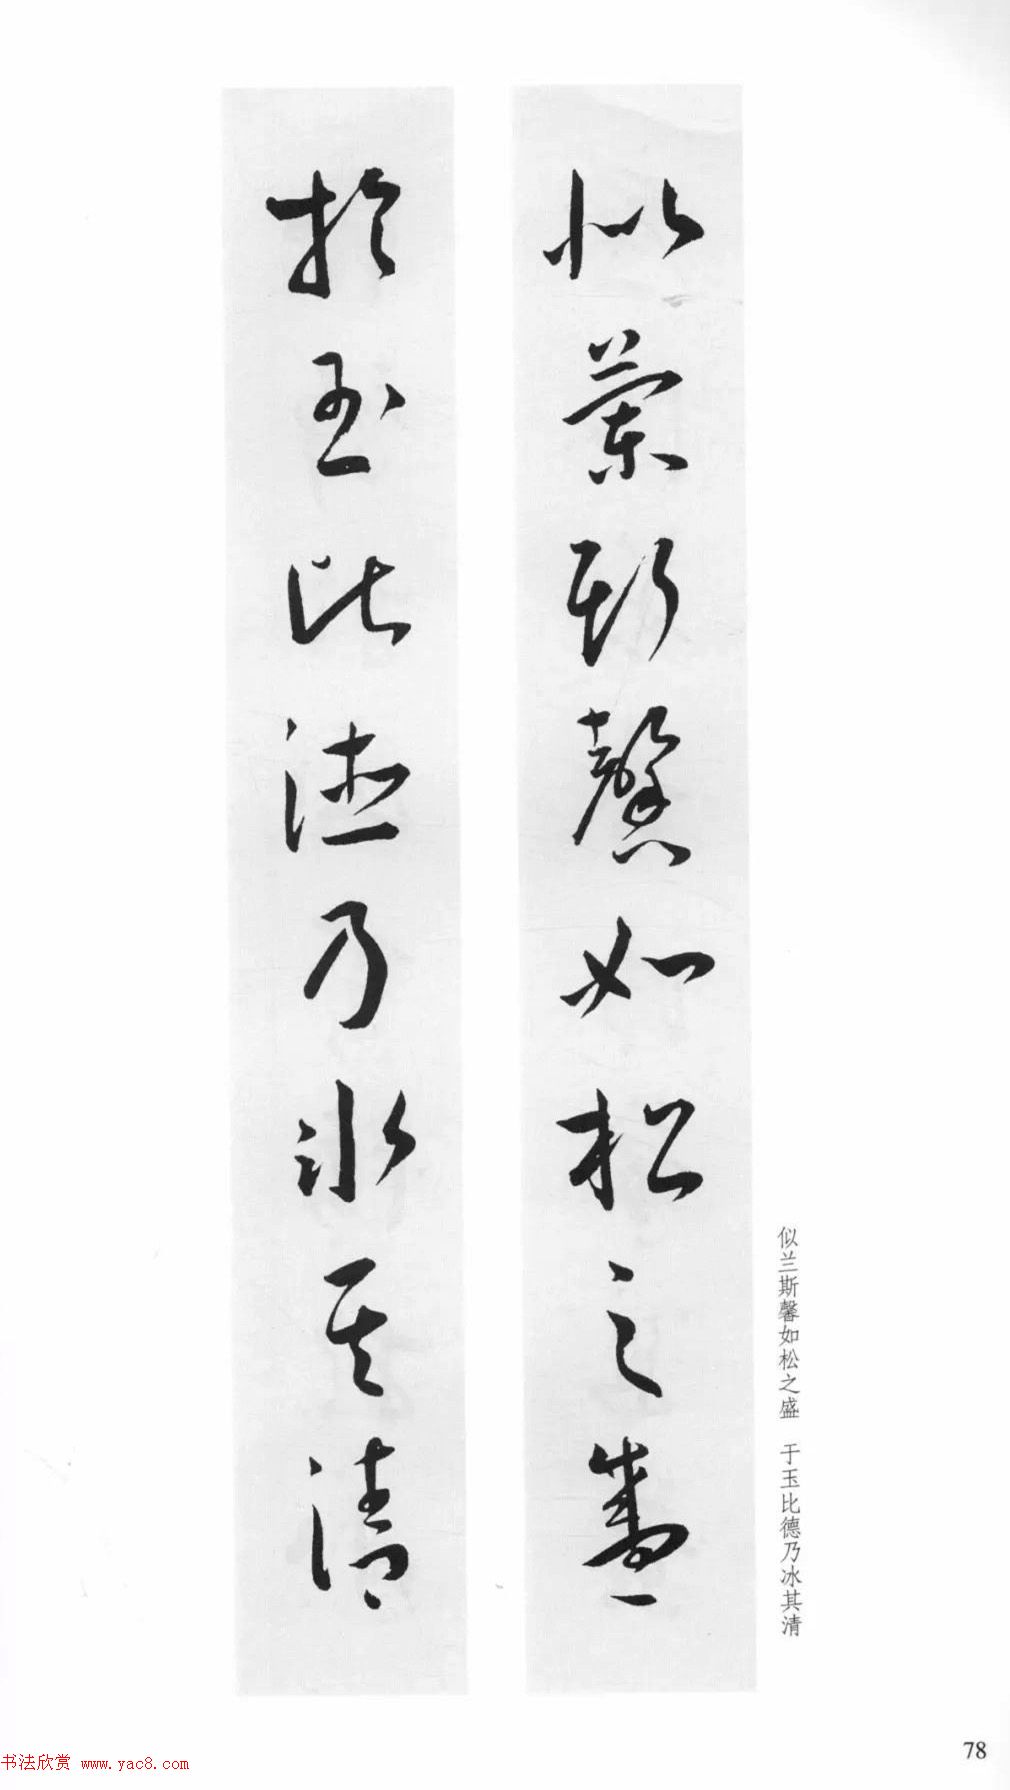 似蘭斯馨如松之盛
於玉比德乃冰其清
似兰斯馨如松之盛　于玉比德乃冰其清
78
书法欣赏 www.yac8.com